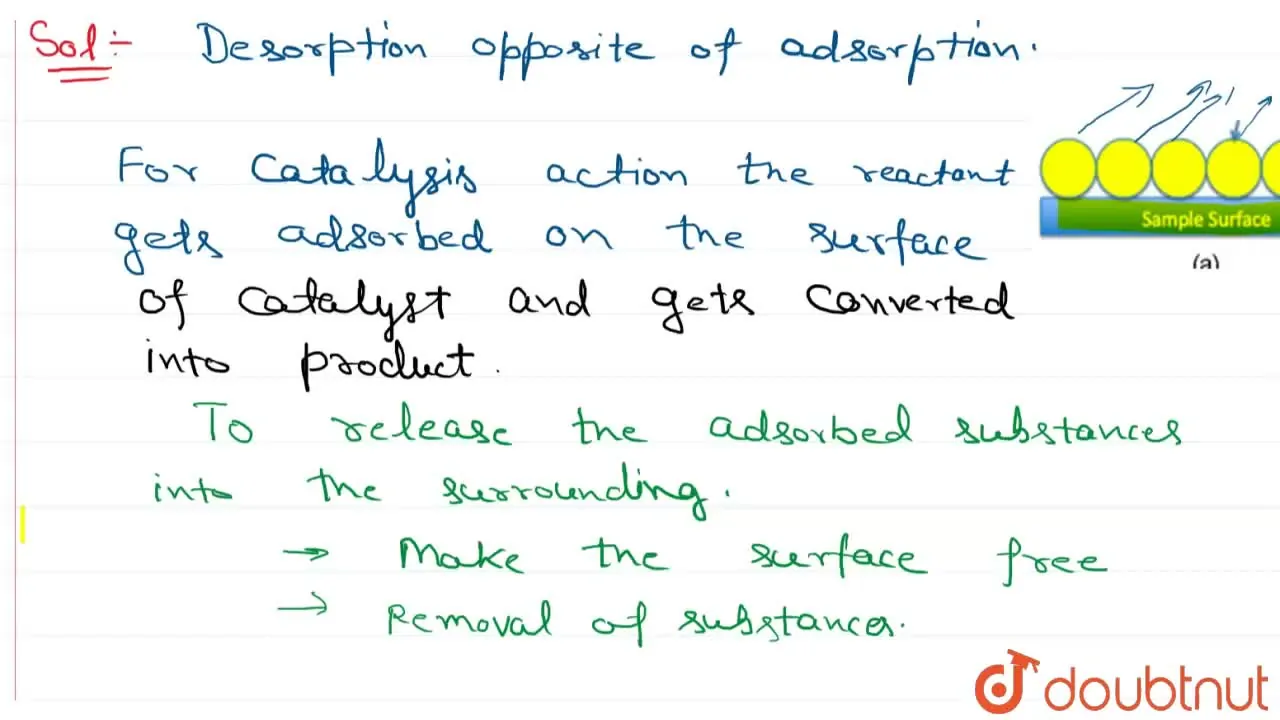 Sol:-
Desorption opposite of adsorption.
For Catalysis action the reactant
gets adsorbed on the surface
of Catalyst and gets Converted
into product.
To release the adsorbed substances
into the surrounding.
→ Make the surface free
→ Removal of substances.
Sample Surface
(a)
doubtnut